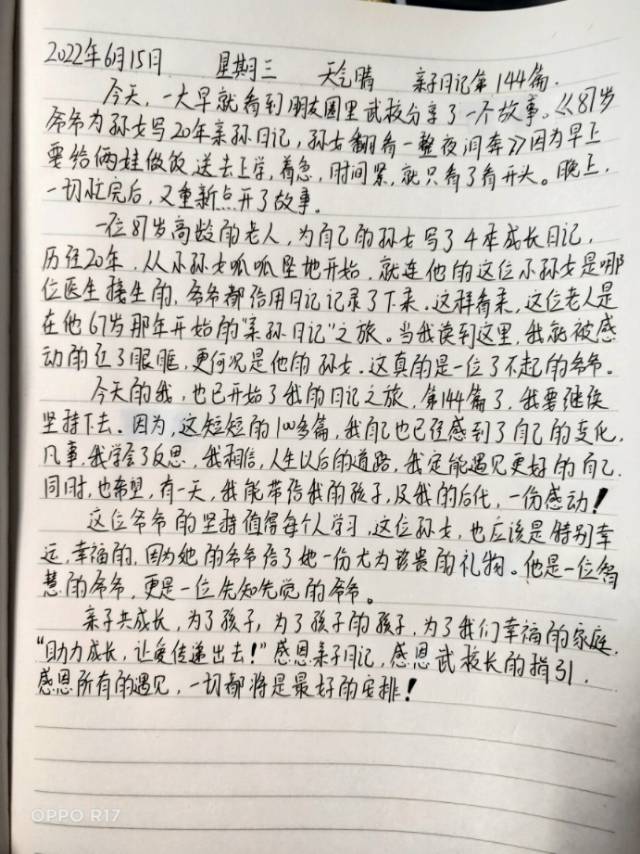 2022年6月15日 星期三 天气晴 亲子日记第144篇.
今天,一大早就看到朋友圈里武校分享了一个故事。《87岁
爷爷为孙女写20年亲孙日记,孙女翻看一整夜泪奔》因为早上
要给俩娃做饭送去上学,着急,时间紧,就只看了看开头。晚上,
一切忙完后,又重新点开了故事。
一位87岁高龄的老人,为自己的孙女写了4本成长日记,
历经20年,从小孙女呱呱坠地开始,就连他的这位小孙女是哪
位医生接生的,爷爷都给用日记记录了下来.这样看来,这位老人是
在他67岁那年开始的"亲孙日记"之旅。当我读到这里,我能被感
动的红了眼眶,更何况是他的孙女.这真的是一位了不起的爷爷。
今天的我,也已开始了我的日记之旅,第144篇了,我要继续
坚持下去。因为,这短短的100多篇,我自己也已经感到了自己的变化,
凡事,我学会了反思,我相信,人生以后的道路,我定能遇见更好的自己.
同时,也希望,有一天,我能带给我的孩子,及我的后代,一份感动!
这位爷爷的坚持值得每个人学习,这位孙女,也应该是特别幸
运,幸福的,因为她的爷爷给了她一份尤为珍贵的礼物。他是一位智
慧的爷爷,更是一位先知先觉的爷爷。
亲子共成长,为了孩子,为了孩子的孩子,为了我们幸福的家庭,
"助力成长,让爱传递出去!"感恩亲子日记,感恩武校长的指引.
感恩所有的遇见,一切都将是最好的安排!
OPPO R17